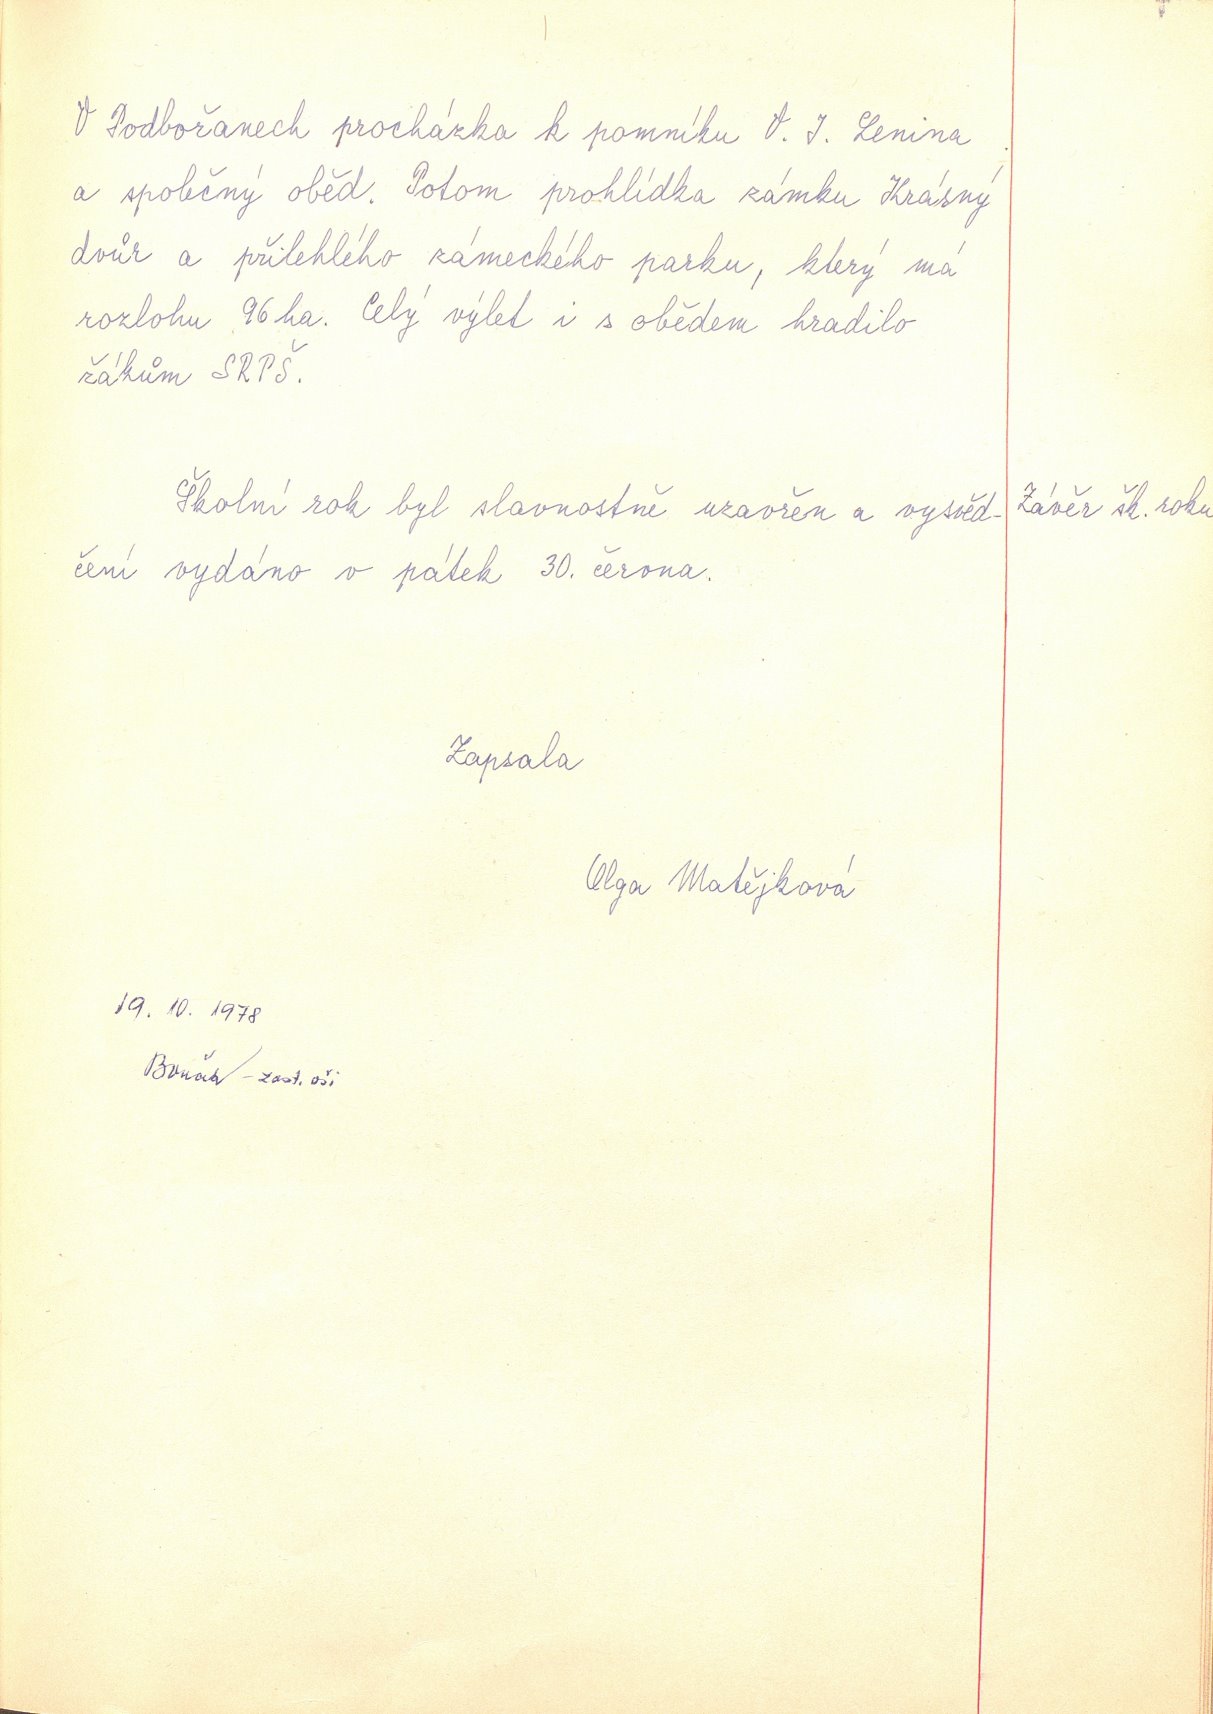 V Podbořanech procházka k pomníku V. I. Lenina
a společný oběd. Potom prohlídka zámku Krásný
dvůr a přilehlého zámeckého parku, který má
rozlohu 96 ha. Celý výlet i s obědem hradilo
žákům SRPŠ.
Školní rok byl slavnostně uzavřen a vysvěd-
Závěr šk. roku
čení vydáno v pátek 30. června.
Zapsala
Olga Matějková
19. 10. 1978
- zást. oši